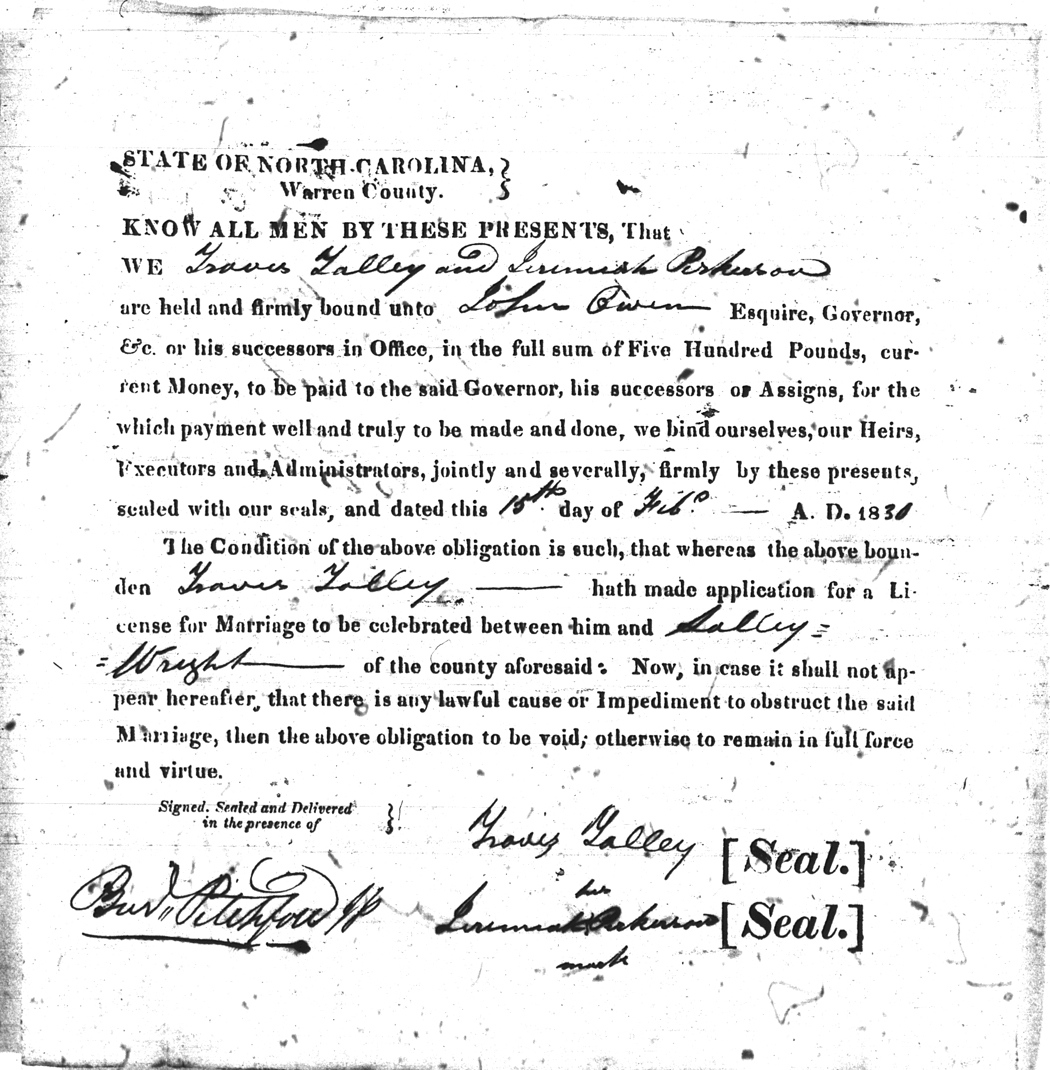 STATE OF NORTH-CAROLINA, }
Warren County.
KNOW ALL MEN BY THESE PRESENTS, That
WE Travis Talley and Jeremiah Perkerson
are held and firmly bound unto John Owen Esquire, Governor,
&c. or his successors in Office, in the full sum of Five Hundred Pounds, cur-
rent Money, to be paid to the said Governor, his successors or Assigns, for the
which payment well and truly to be made and done, we bind ourselves, our Heirs,
Executors and Administrators, jointly and severally, firmly by these presents,
sealed with our seals, and dated this 15th. day of Feb. — A. D. 1830
The Condition of the above obligation is such, that whereas the above boun-
den Travis Talley — hath made application for a Li-
cense for Marriage to be celebrated between him and Salley =
= Wright — of the county aforesaid: Now, in case it shall not ap-
pear hereafter, that there is any lawful cause or Impediment to obstruct the said
Marriage, then the above obligation to be void; otherwise to remain in full force
and virtue.
Signed, Sealed and Delivered }
in the presence of
Travis Talley [Seal.]
his
Pitchford Jeremiah Perkerson [Seal.]
mark